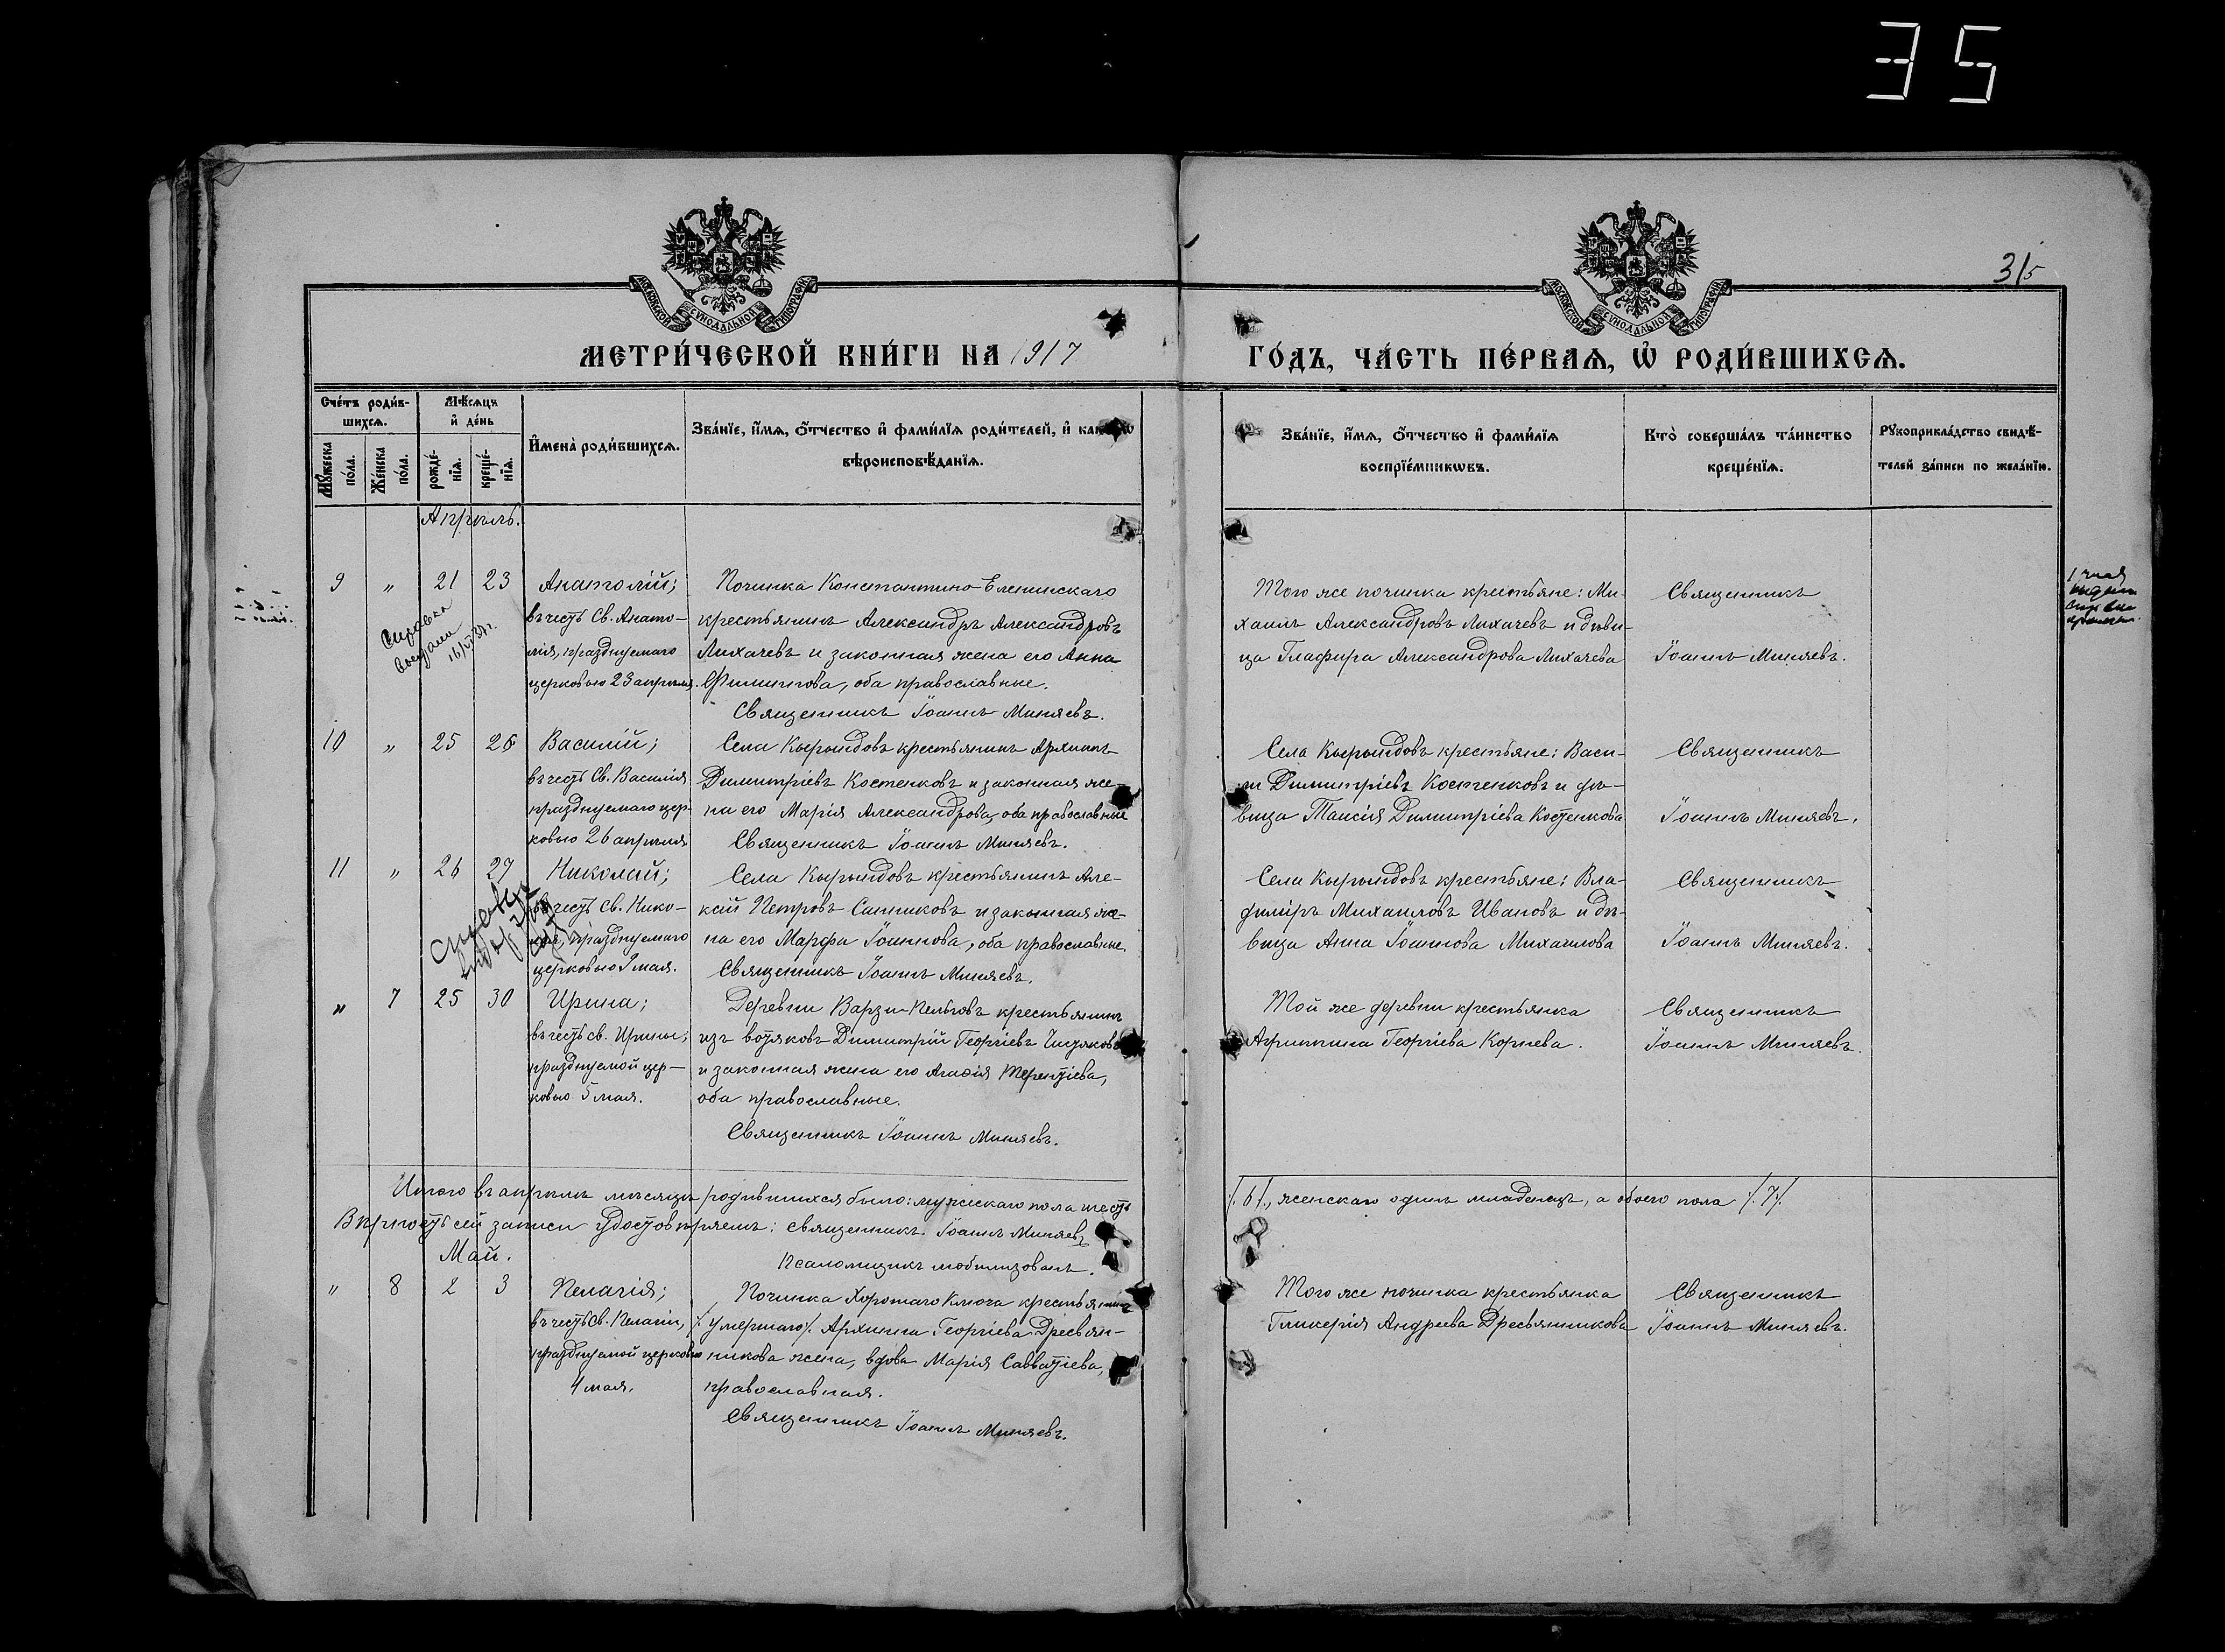 35
МОСКОВСКОЙ СѴНОДАЛЬНОЙ ТИПОГРАФІИ
МОСКОВСКОЙ СѴНОДАЛЬНОЙ ТИПОГРАФІИ
315
МЕТРИ́ЧЕСКОЙ КНИ́ГИ НА 1917
ГО́ДЪ, ЧА́СТЬ ПЕ́РВАѦ, Ѽ РОДИ́ВШИХСѦ.
Сче́тъ роди́в-
шихсѧ.
Мꙋ́жеска
по́ла.
Же́нска
по́ла.
Мѣ́сѧцъ
и҆ де́нь
рожде́-
нїѧ.
креще́-
нїѧ.
И҆мена̀ роди́вшихсѧ.
Зва́нїе, и҆́мѧ, ѻ҆́тчество и҆ фами́лїѧ роди́телей, и҆
вѣроисповѣ́данїѧ.
Зва́нїе, и҆́мѧ, ѻ҆́тчество и҆ фами́лїѧ
воспрїе́мникѡвъ.
Кто̀ соверша́лъ та́инство
креще́нїѧ.
Рꙋкоприкла́дство свидѣ́-
телей за́писи по жела́нїю.
Апрѣль.
9 „ 21 23
Анатолій;
въ честь Св. Анато-
лія, празднуемаго
церковью 23 апрѣля.
Починка Константино-Еленинскаго
крестьянинъ Александръ Александровъ
Лихачевъ и законная жена его Анна
Филиппова, оба православные.
Священникъ Іоаннъ Миняевъ.
Того же починка крестьяне: Ми-
хаилъ Александровъ Лихачевъ и дѣви-
ца Глафира Александрова Лихачева
Священникъ
Іоаннъ Миняевъ.
Справка
выдана
10 „ 25 26
Василій;
въ честь Св. Василія
празднуемаго цер-
ковью 26 апрѣля
Села Кырындовъ крестьянинъ Архиппъ
Димитріевъ Костенковъ и законная же-
на его Марія Александрова, оба православные
Священникъ Іоаннъ Миняевъ.
Села Кырындовъ крестьяне: Васи-
ли Димитріевъ Костенковъ и дѣ-
вица Таисія Димитріева Костенкова
Священникъ
Іоаннъ Миняевъ.
11 „ 26 27
Николай;
въ честь Св. Нико-
лая, празднуемаго
церковью 9 мая.
Села Кырындовъ крестьянинъ Але-
ксій Петровъ Санниковъ и законная же-
на его Марфа Іоаннова, оба православные.
Священникъ Іоаннъ Миняевъ.
Села Кырындовъ крестьяне: Вла-
диміръ Михаиловъ Ивановъ и дѣ-
вица Анна Іоаннова Михаилова
Священникъ
Іоаннъ Миняевъ.
„ 7 25 30
Ирина;
въ честь св. Ирины;
празднуемой цер-
ковью 5 мая.
Деревни Варзи-Пельговъ крестьянинъ
изъ вотяковъ Димитрій Георгіевъ
и законная жена его Агаѳія Терентіева,
оба православные.
Священникъ Іоаннъ Миняевъ.
Той же деревни крестьянка
Агриппина Георгіева Корнева.
Священникъ
Іоаннъ Миняевъ.
Итого въ апрѣлѣ мѣсяцѣ родившихся было: мужскаго пола шесть
/. 6 /., женскаго одинъ младенецъ, а обоего пола /. 7 /.
Вѣрность сей записи удостовѣряемъ: Священникъ Іоаннъ Миняевъ
Псаломщикъ мобилизованъ.
Май.
„ 8 2 3
Пелагія;
въ честь Св. Пелагіи,
празднуемой церковью
4 мая.
Починка Хорошаго Ключа крестьянина
/. умершаго /. Архиппа Георгіева Дресвян-
никова жена, вдова Марія Савватіева,
православная.
Священникъ Іоаннъ Миняевъ.
Того же починка крестьянка
Гликерія Андреева Дресвянникова
Священникъ
Іоаннъ Миняевъ.